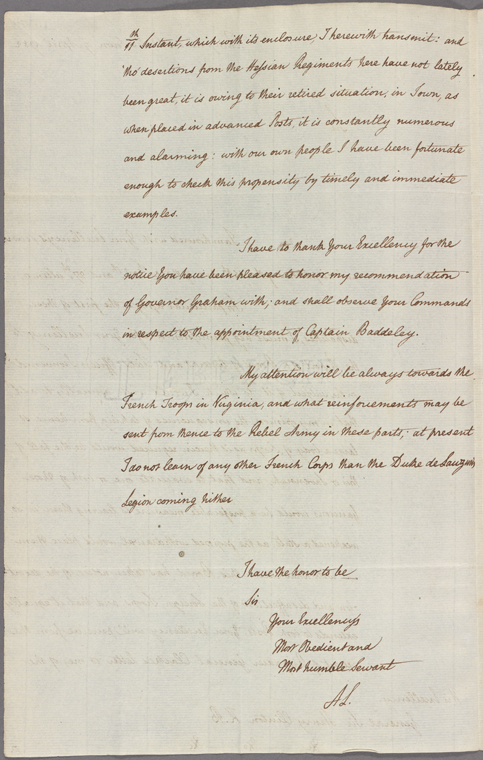 11th Instant, which with its enclosure, I herewith transmit: and
tho' desertions from the Hessian Regiments here have not lately
been great, it is owing to their retired situation, in Town, as
when placed in advanced Posts, it is constantly numerous
and alarming: with our own people I have been fortunate
enough to check this propensity by timely and immediate
examples.
I have to thank Your Excellency for the
notice You have been pleased to honor my recommendation
of Governor Graham with; and shall observe Your Commands
in respect to the appointment of Captain Baddeley.
My attention will be always towards the
French Troops in Virginia, and what reinforcements may be
sent from thence to the Rebel Army in these parts; at present
I do not learn of any other French Corps than the Duke de Lauzun's
Legion coming hither
I have the honor to be
Sir
Your Excellency's
Most Obedient and
Most humble Servant
AL.